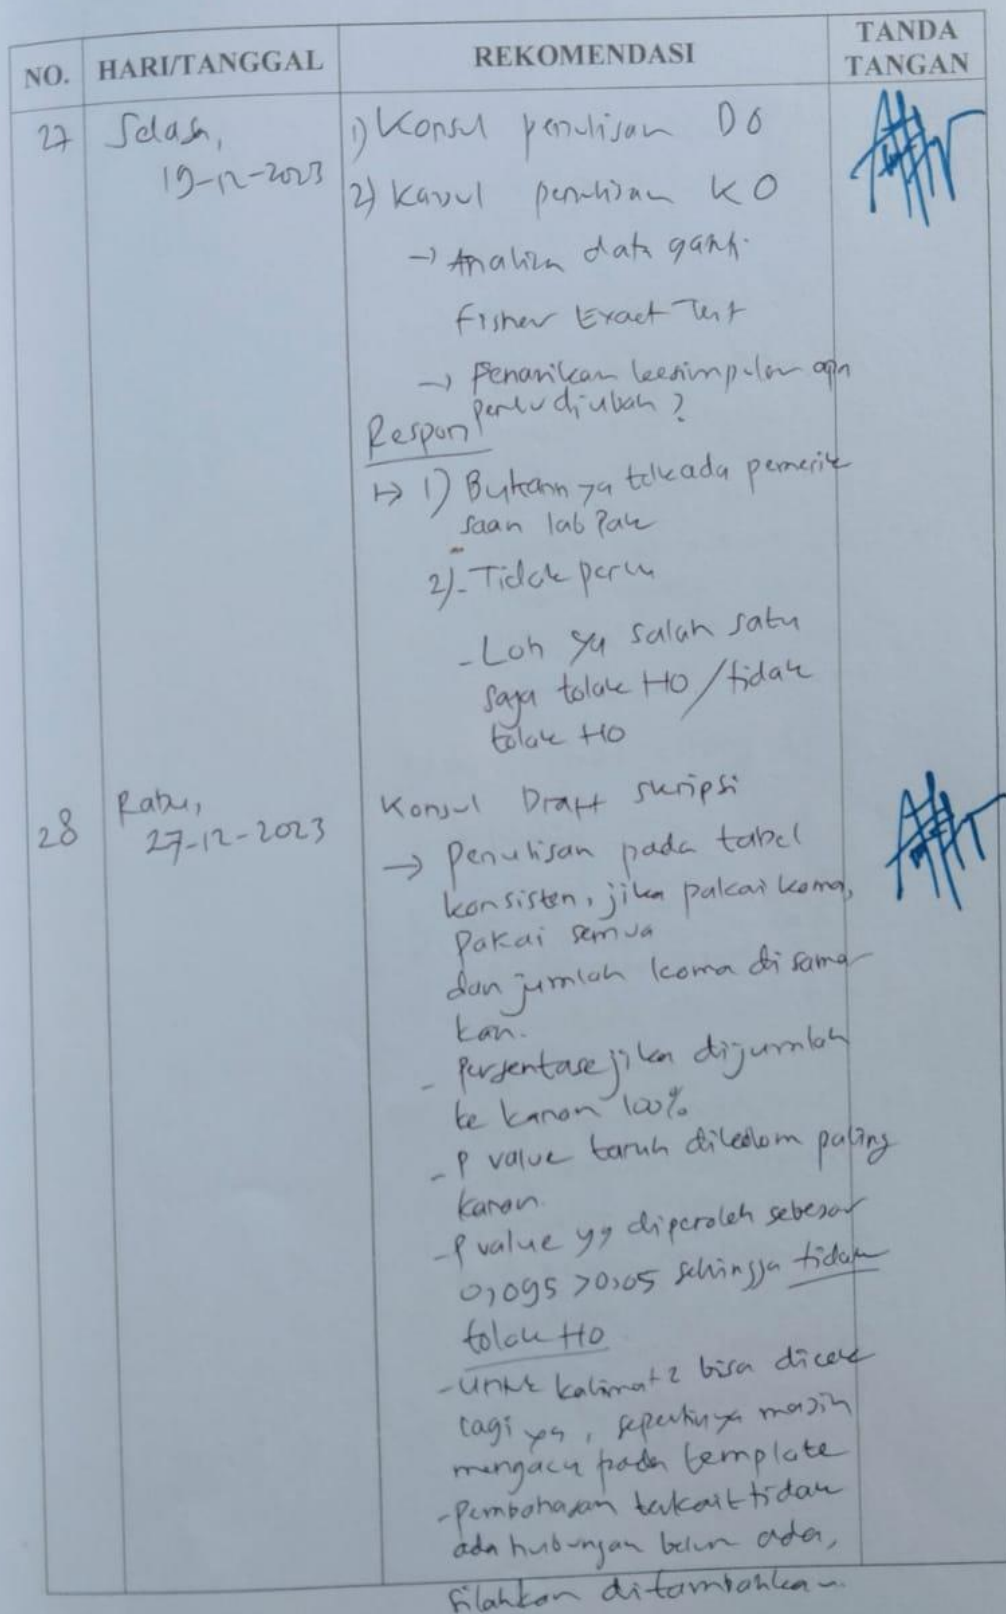 NO. HARI/TANGGAL REKOMENDASI TANDA TANGAN
27 Selasa, 19-12-2023
1) Konsul penulisan DO
2) Konsul penulisan KO
→ Analisa data ganti
Fisher Exact Test
→ Penarikan kesimpulan apa
perlu diubah?
Respon
↦ 1) Bukannya tdk ada pemerik
saan lab Pak
2) - Tidak perlu
- Loh ya salah satu
saja tolak HO / tidak
tolak HO
28 Rabu, 27-12-2023
Konsul Draft skripsi
→ Penulisan pada tabel
konsisten, jika pakai koma,
pakai semua
dan jumlah koma di sama
kan.
- Persentase jika dijumlah
ke kanan 100%
- P value taruh dikolom paling
kanan.
- P value yg diperoleh sebesar
0,095 > 0,05 sehingga tidak
tolak HO
- Untuk kalimat2 bisa dicek
lagi ya, sepertinya masih
mengacu pada template
- Pembahasan terkait tidak
ada hubungan belum ada,
silahkan ditambahkan.